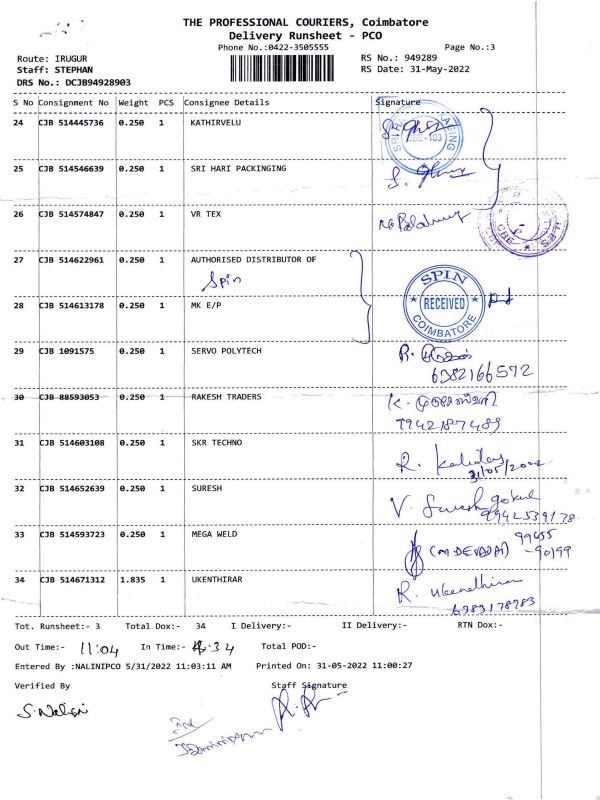 THE PROFESSIONAL COURIERS, Coimbatore
Delivery Runsheet - PCO
Phone No.:0422-3505555
Page No.:3
Route: IRUGUR
RS No.: 949289
Staff: STEPHAN
RS Date: 31-May-2022
DRS No.: DCJB94928903
S No Consignment No Weight PCS Consignee Details Signature
24 CJB 514445736 0.250 1 KATHIRVELU
25 CJB 514546639 0.250 1 SRI HARI PACKINGING
26 CJB 514574847 0.250 1 VR TEX
CBE
27 CJB 514622961 0.250 1 AUTHORISED DISTRIBUTOR OF
Spin
SPIN
RECEIVED
COIMBATORE
28 CJB 514613178 0.250 1 MK E/P
29 CJB 1091575 0.250 1 SERVO POLYTECH
6382166572
30 CJB 88593053 0.250 1 RAKESH TRADERS
31 CJB 514603108 0.250 1 SKR TECHNO
R. Kalidas
31/05/2022
32 CJB 514652639 0.250 1 SURESH
V. Suresh gokul
9942539178
33 CJB 514593723 0.250 1 MEGA WELD
99455
-90199
34 CJB 514671312 1.835 1 UKENTHIRAR
R.
6983178783
Tot. Runsheet:- 3 Total Dox:- 34 I Delivery:- II Delivery:- RTN Dox:-
Out Time:- 11:04 In Time:- 4:32 Total POD:-
Entered By :NALINIPCO 5/31/2022 11:03:11 AM Printed On: 31-05-2022 11:00:27
Verified By Staff Signature
S. Nalini